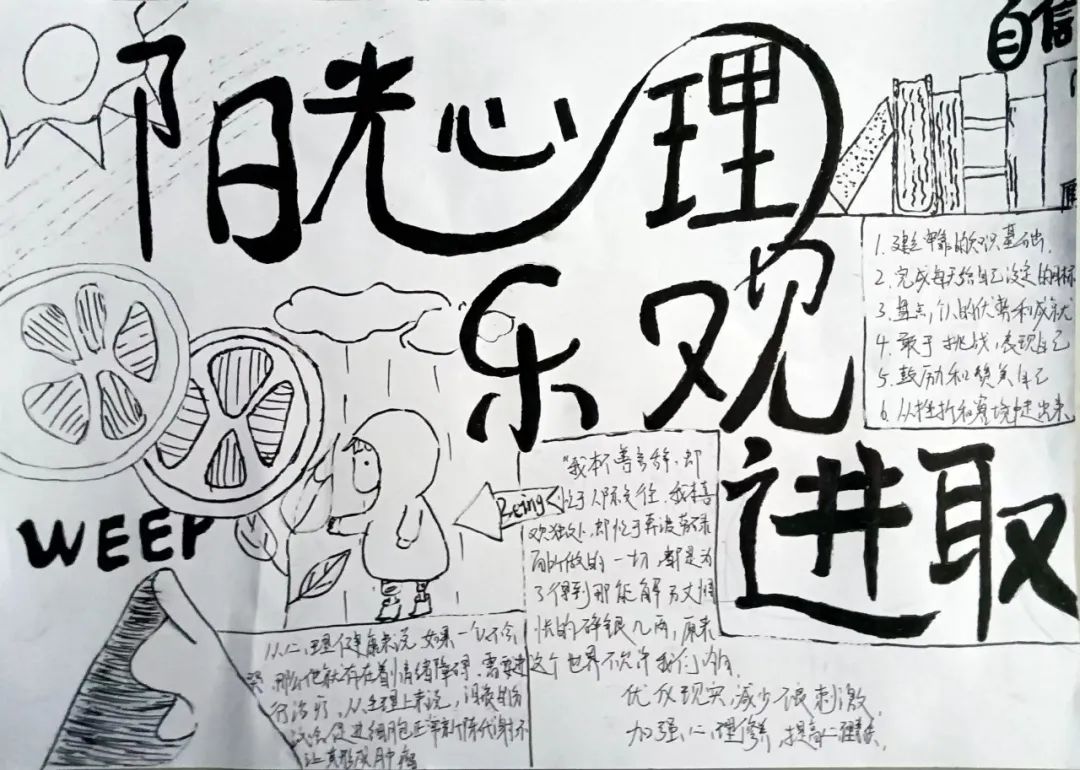 阳光心理
自信
乐观
进取
1.建立牢靠的知识基础.
2.完成每天给自己设定的目标
3.盘点个人的优势和成就
4.敢于挑战,表现自己
5.鼓励和赞美自己
6.从挫折和困境中走出来
WEEP
Being
"我本不善言辞,却
忙于人际交往,我本喜
欢独处,却忙于奔波劳碌
而所做的一切,都是为
了得到那能解万丈惆
怅的碎银几两,原来
这个世界不允许我们
从心理健康来说,如果一个人不会
哭,那么他就存在着情绪障碍,需要进
行治疗,从生理上来说,泪液的分
泌会促进细胞正常新陈代谢,不
让其形成肿瘤
优化现实,减少不良刺激,
加强心理修养,提高心理素质.